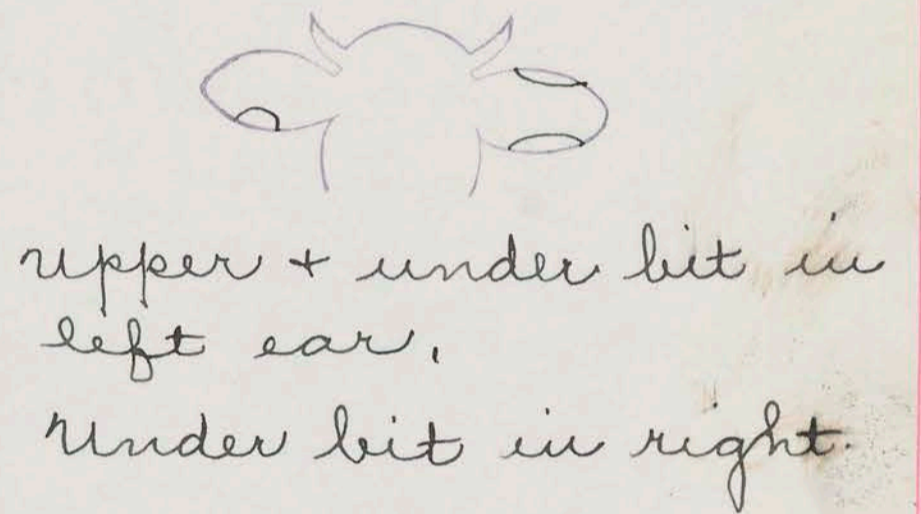 Upper + under bit in
left ear.
Under bit in right.